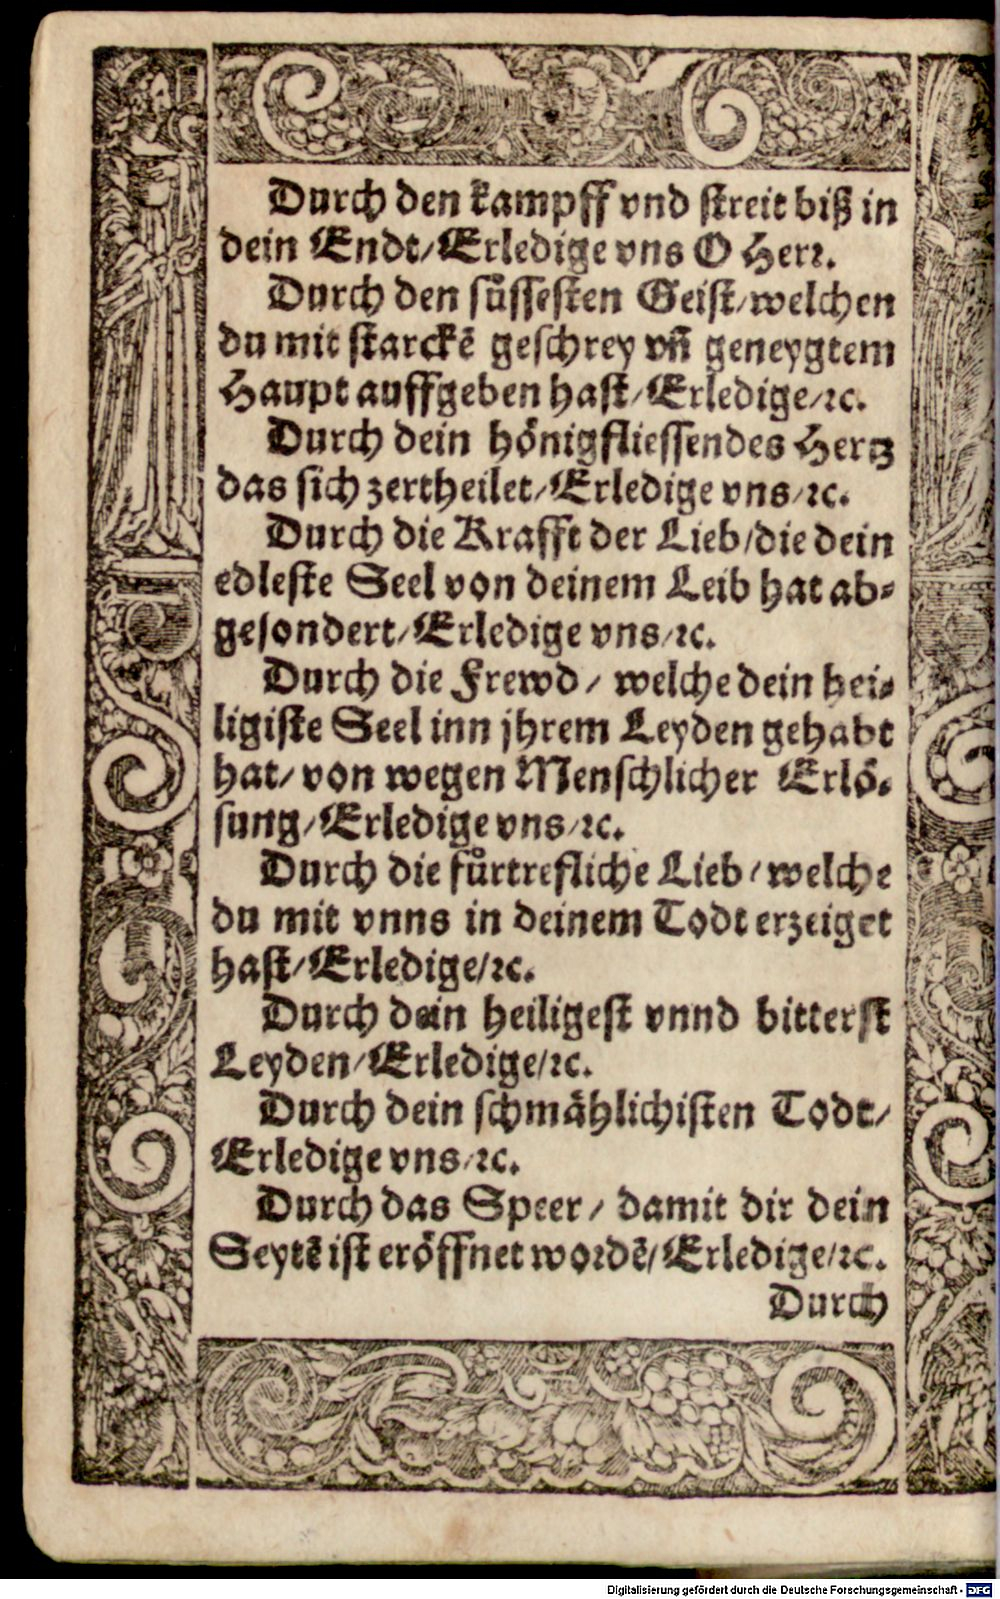 Durch den kampff vnd streit biß in
dein Endt/Erledige vns O Herꝛ.
Durch den suͤssesten Geist/welchen
du mit starckē geschrey vñ geneygtem
Haupt auffgeben hast/Erledige/ꝛc.
Durch dein hoͤnigfliessendes Hertz
das sich zertheilet/Erledige vns/ꝛc.
Durch die Krafft der Lieb/die dein
edleste Seel von deinem Leib hat ab-
gesondert/Erledige vns/ꝛc.
Durch die Frewd/ welche dein hei-
ligiste Seel inn jhrem Leyden gehabt
hat/ von wegen Menschlicher Erloͤ-
sung/Erledige vns/ꝛc.
Durch die fuͤrtrefliche Lieb/ welche
du mit vnns in deinem Todt erzeiget
hast/Erledige/ꝛc.
Durch dein heiligest vnnd bitterst
Leyden/Erledige/ꝛc.
Durch dein schmaͤhlichisten Todt/
Erledige vns/ꝛc.
Durch das Speer/ damit dir dein
Seytē ist eroͤffnet wordē/Erledige/ꝛc.
Durch
Digitalisierung gefördert durch die Deutsche Forschungsgemeinschaft - DFG